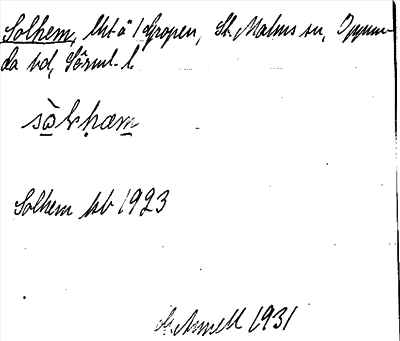 Solhem, lht å 1 Gropen, St. Malms sn, Oppun-
da hd, Sörml. l.
Solhem jb 1923
G. Annell 1931